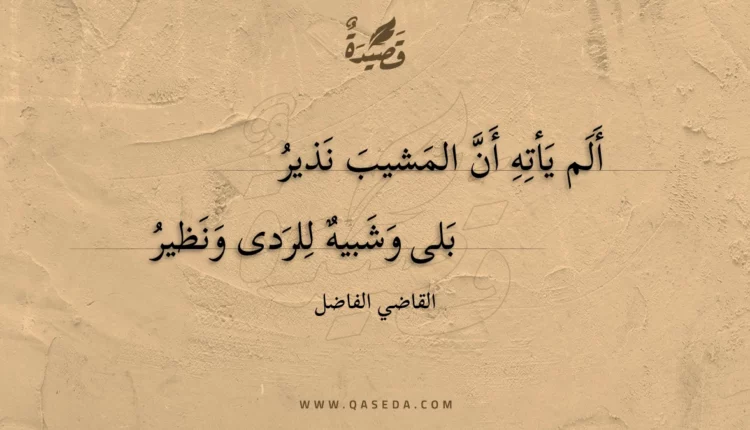 قَصِيدَةٌ
أَلَم يَأتِهِ أَنَّ المَشيبَ نَذيرُ
بَلى وَشَبيهٌ لِلرَدى وَنَظيرُ
القاضي الفاضل
WWW.QASEDA.COM